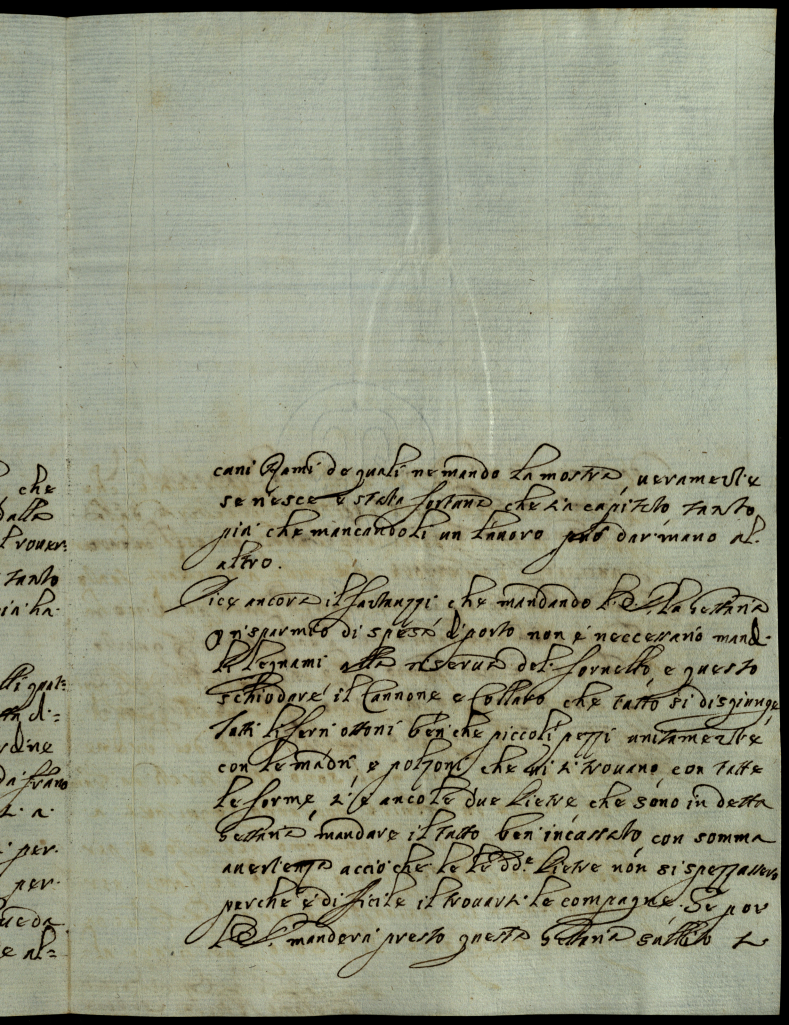 che
dalla
trouer:
tanto
lli quat:
rdine
per.
per.
ueda
e al=
cani Rami de quali ne mando la mostra, ueramente
se riesce è stata fortuna che sia capitato tanto
più che mancandoli un lauoro può dar mano al.
altro.
Dice ancora il che mandando V.S. la Gettaria
p risparmio di spesa di porto non è neccessario mand.
li legnami alla riserua del fornello, e questo
schiodare il Cannone e Collaro che tutto si disgiunge
Tutti li ferri ottoni ben che piccoli pezzi unitamente
con le madri, e polzoni che ui si trouano, con tutte
le forme, e anco le due Pietre che sono in detta
Gettaria mandare il tutto ben incassato, con somma
auertenza acciò che le dd.e Pietre non si spezzassero
perche è dificile il trouarsi le compagne. Se poi
V.S. manderà presto questa Gettaria subito